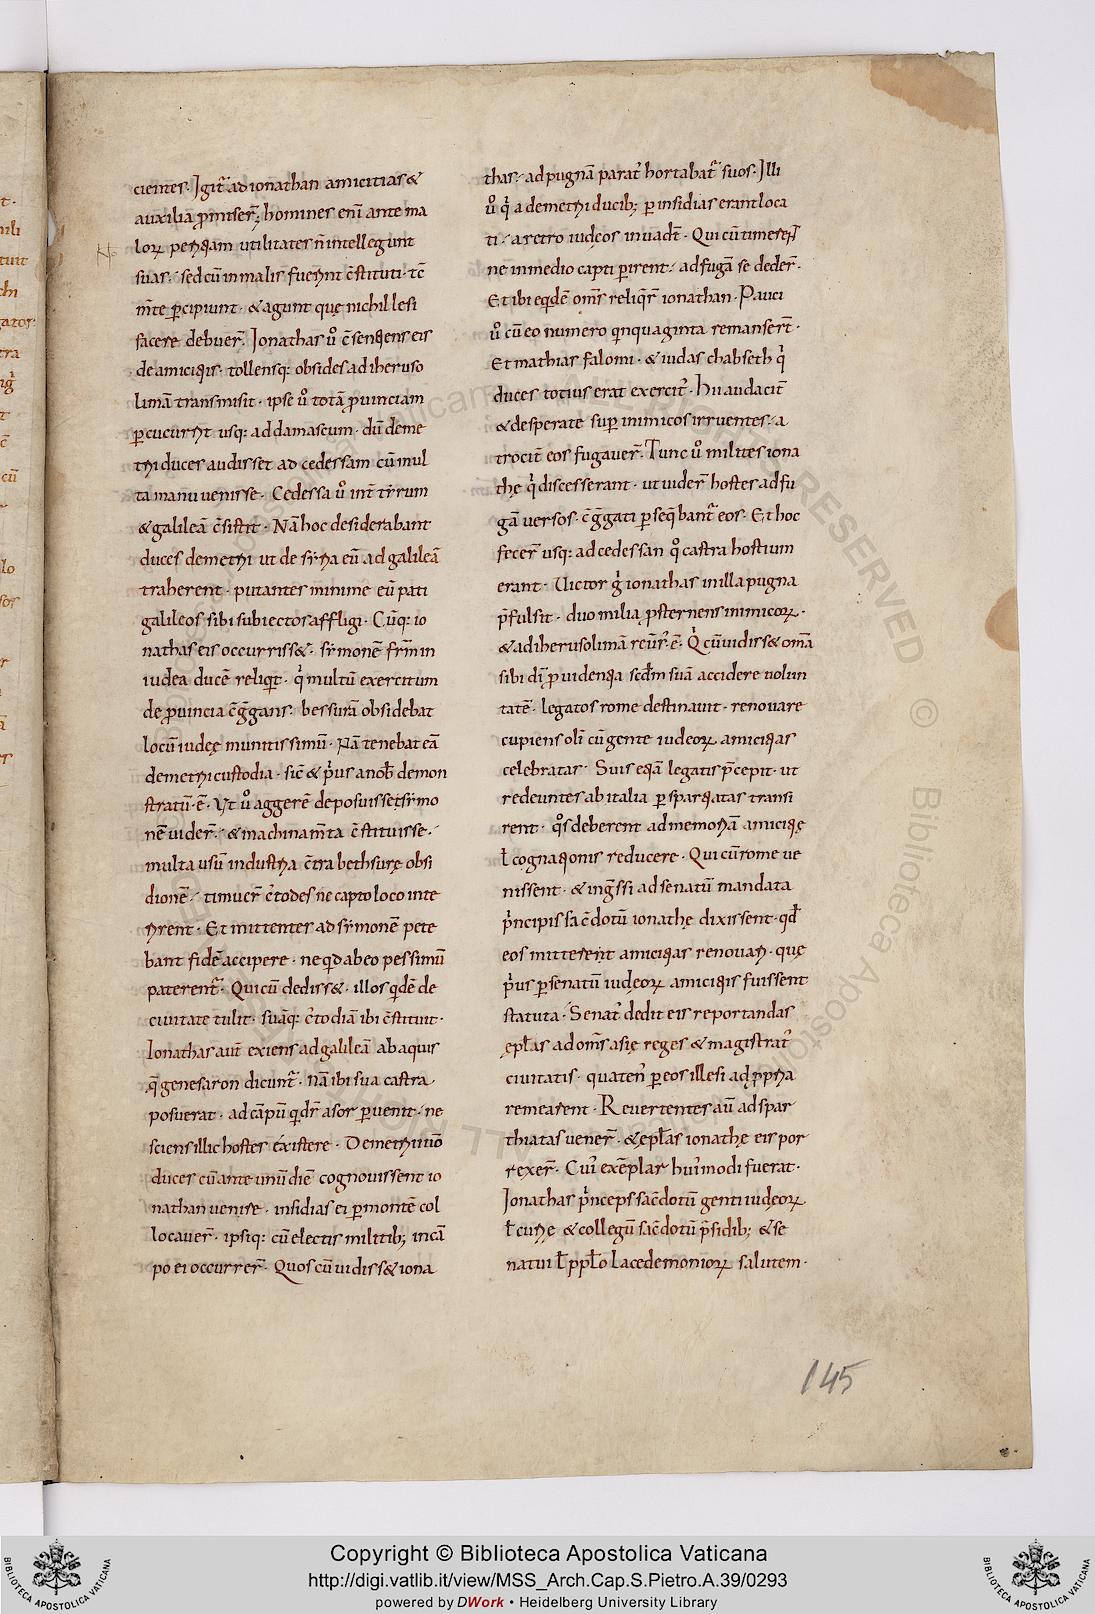 cientes. Igit̃ ad ionathan amicitias &
auxiliā p̃miser̃; homines eni ante ma
loꝝ peri͡tiam utilitates ñ intellegunt
suas. sed cū in malis fuerint c̄stituti. tc̄
m̄te p̃cipiunt. & agunt quę nichil lesi
facere debuer̃. Ionathas ů c̄sentiens eis
de amicitiis. tollensq: obsides ad iheruso
limā transmisit. ipse ů totā p̃uinciam
p̱cucurrit usq: ad damascum. dū deme
trii duces audisset ad cedessam cū mul
ta manu uenisse. Cedessa ů int̃ tyrum
& galileā c̄sistit. Nā hoc desiderabant
duces demetrii ut de syria eū ad galileā
traherent. putantes minime eū pati
galileos sibi subiectos affligi. Cūq: io
nathas eis occurriss&. symonē fr̄m in
iudea ducē reliqit. q̇ multū exercitum
de p̃uincia c̄g̃gans. bessurā obsidebat
locū iudeę munitissimū. Nā tenebat eā
demetrii custodia. sic̄ & p̃us a nob̄ demon
stratū.ē. Vt ů aggerē deposuisse symo
nē uider̃. & machinam̄ta c̄stituisse.
multa usū industria c̄tra bethsurę obsi
dionē. timuer̃ c̄todes ne capto loco inte
rirent. Et mittentes ad symonē pete
bant fidē accipere. ne qd ab eo pessimū
paterent̃. Qui cū dediss&. illos qdē de
ciuitate tulit. suāq: c̄todiā ibi c̄stituit.
Ionathas aut̄ exiens ad galileā ab aquis
q̄ genesaron dicunt̃. nā ibi sua castra
posuerat. ad cāpū q dr̄ asor p̱uenit. ne
sciens illic hostes existere. Demetrii uo
duces cū ante unū diē cognouissent io
nathan uenire. insidias ei p̱ montē col
locauer̃. ipsiq: cū electis militib; in cā
po ei occurrer̃. Quos cū uidiss& iona
thas. ad pugnā parat' hortabat̃ suos. Illi
ů q̇ a demetrii ducib; p̱ insidias erant loca
ti. a retro iudeos inuadt̄. Qui cū timerent
ne in medio capti p̱irent. ad fugā se deder̃.
Et ibi eqdē om̄s reliqr̃ ionathan. Pauci
ů cū eo numero qnquaginta remanser̃t.
Et mathias falomi. & iudas chabseth q̇
duces totius erat exercit'. Hii audacit̃
& desperate sup̱ inimicos irruentes. a
trocit̃ eos fugauer̃. Tunc ů milites iona
thę q̇ discesserant. ut uider̃ hostes ad fu
gā uersos. c̄g̃gati p̱seqbant̃ eos. Et hoc
fecer̃ usq: ad cedessan q̊ castra hostium
erant. Victor g̊ ionathas in illa pugna
p̄fulsit. duo milia p̱sternens inimicoꝝ.
& ad iherusolimā reūs'.ē. Q̇ cū uidiss& omā
sibi dī p̃uidentia scd̄m suā accidere uolun
tatē. legatos rome destinauit. renouare
cupiens oli cū gente iudeoꝝ amicitias
celebratas. Suis etiā legatis p̄cepit. ut
redeuntes ab italia p̱ spartiatas transi
rent. q̊s deberent ad memoriā amicitię
ł cognationis reducere. Qui cū rome ue
nissent. & ing̃ssi ad senatū mandata
p̃ncipis sac̄dotū ionathę dixissent. qd̄
eos mitterent amicitias renouari. quę
p̃us p̱ senatū iudeoꝝ amicitiis fuissent
statuta. Senat' dedit eis reportandas
ęptas ad om̄s asię reges & magistrat'
ciuitatis. quaten' p̱ eos illesi ad p̃pria
remearent. Reuertentes aū ad spar
thiatas uener̃. & epłas ionathę eis por
rexer̃. Cui' exēplar hui'modi fuerat.
Ionathas p̃nceps sac̄dotū genti iudeoꝝ
ł curię & collegū sac̄dotū p̄sidib; & se
natui ł ppło lacedemonioꝝ salutem.
145
Copyright © Biblioteca Apostolica Vaticana
http://digi.vatlib.it/view/MSS_Arch.Cap.S.Pietro.A.39/0293
powered by DWork • Heidelberg University Library